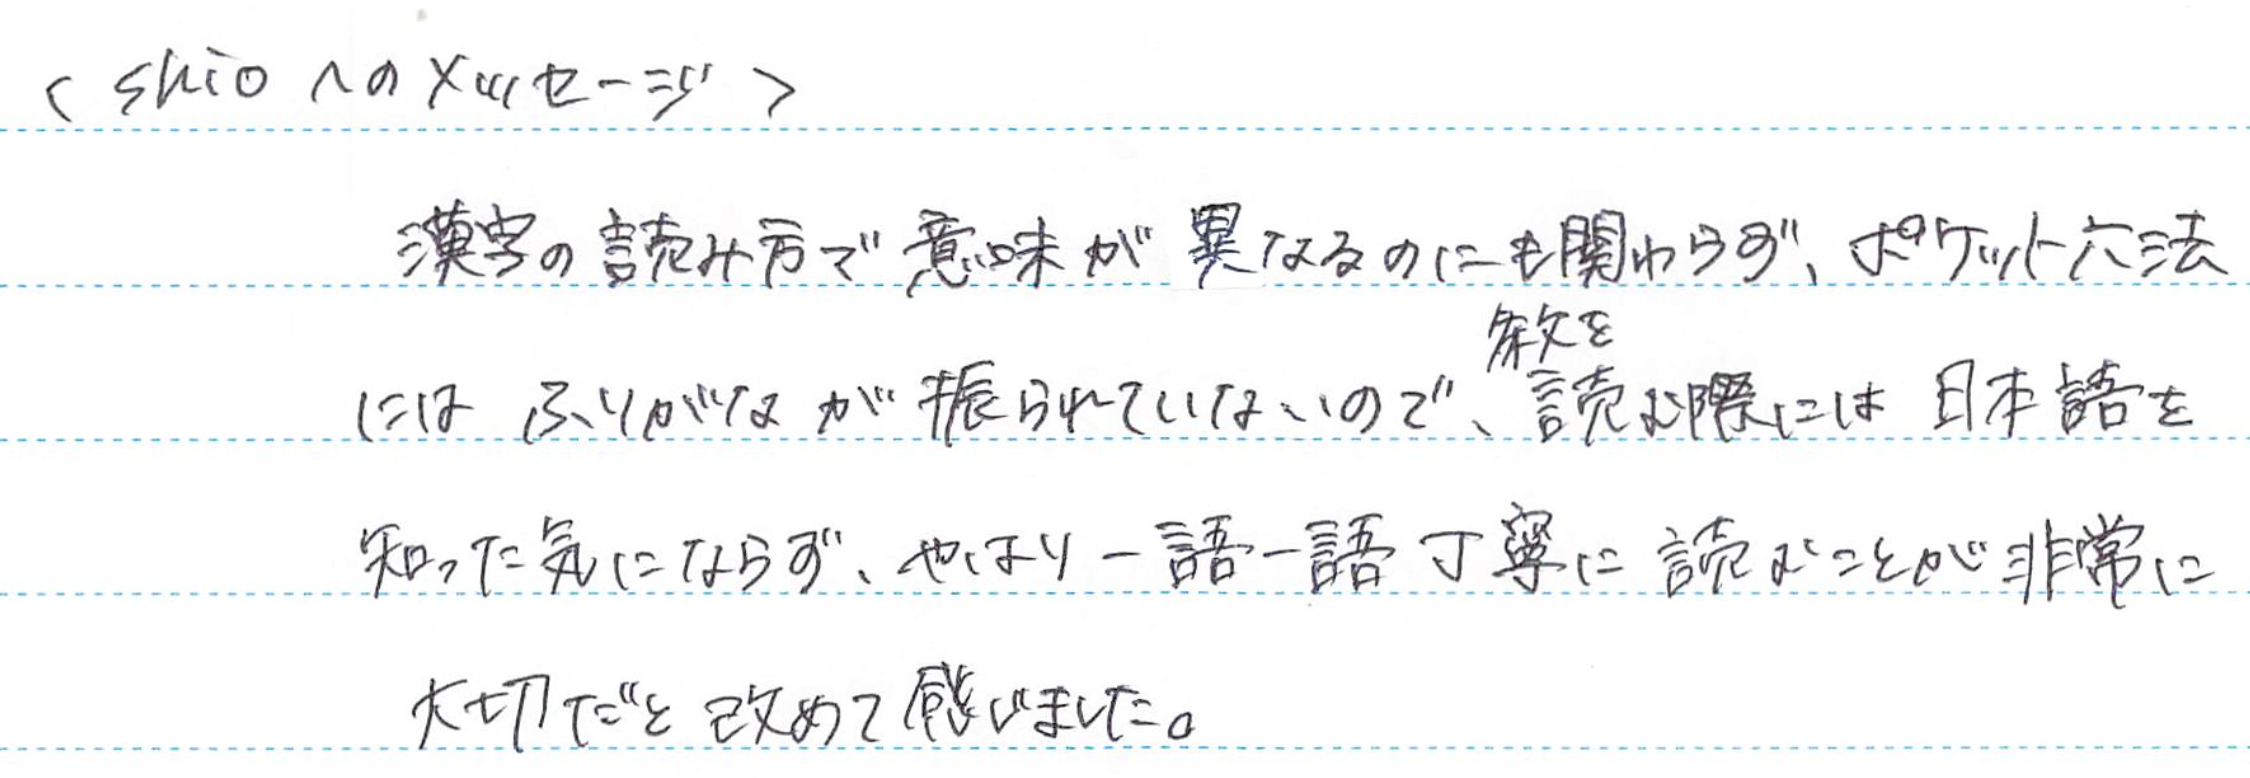 < shio へのメッセージ >
漢字の読み方で意味が異なるのにも関わらず、ポケット六法
条文を
にはふりがなが振られていないので、読む際には日本語を
知った気にならず、やはり一語一語丁寧に読むことが非常に
大切だと改めて感じました。